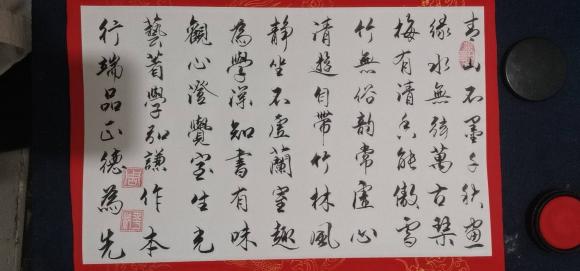 青山不墨千秋畫
綠水無弦萬古琴
梅有清香能傲雪
竹無俗韵常虛心
清遊自帶竹林風
静坐不虛蘭室趣
為學深知書有味
觀心澄覺室生光
藝菁學弘謙作本
行端品正德為先